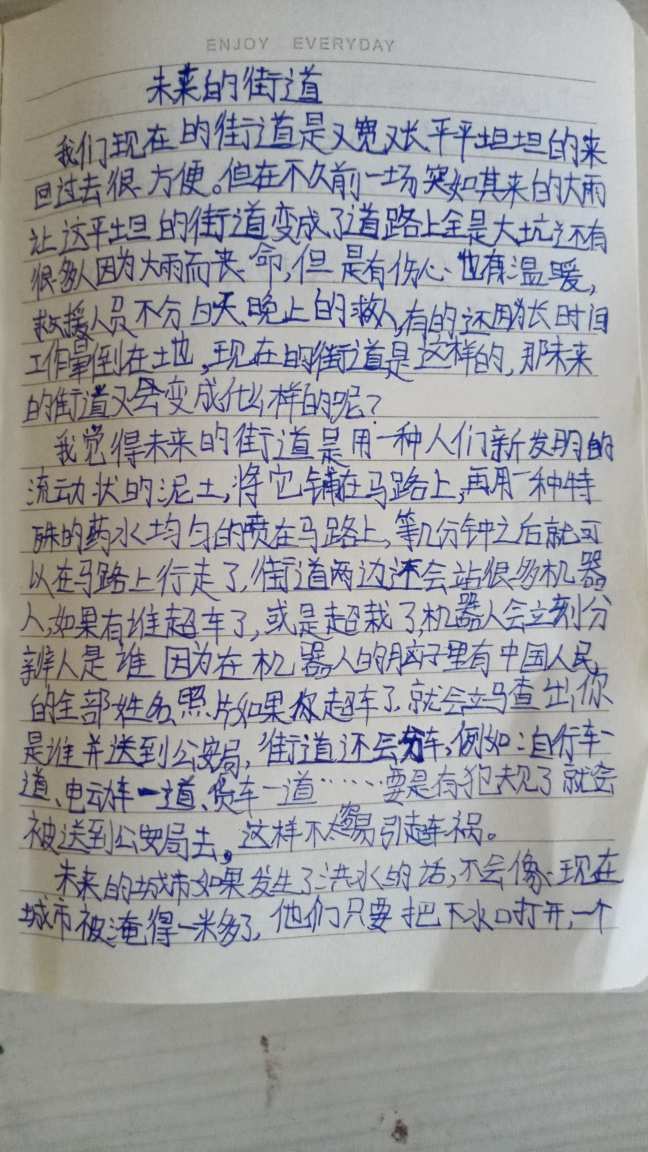 ENJOY EVERYDAY
未来的街道
我们现在的街道是又宽又长平平坦坦的来
回过去很方便。但在不久前一场突如其来的大雨
让这平坦的街道变成了道路上全是大坑还有
很多人因为大雨而丧命,但是有伤心也有温暖,
救援人员不分白天、晚上的救人,有的还因为长时间
工作晕倒在土地,现在的街道是这样的,那未来
的街道又会变成什么样的呢?
我觉得未来的街道是用一种人们新发明的
流动状的泥土,将它铺在马路上,再用一种特
殊的药水均匀的喷在马路上,等几分钟之后就可
以在马路上行走了,街道两边还会站很多机器
人,如果有谁超车了,或是超载了,机器人会立刻分
辨人是谁因为在机器人的脑子里有中国人民
的全部姓名照片如果你超车了就会立马查出你
是谁并送到公安局,街道还会分车,例如:自行车一
道、电动车一道、货车一道……要是有犯规了就会
被送到公安局去。这样不太容易引起车祸。
未来的城市如果发生了洪水的话,不会像现在
城市被淹得一米多了,他们只要把下水口打开,一个